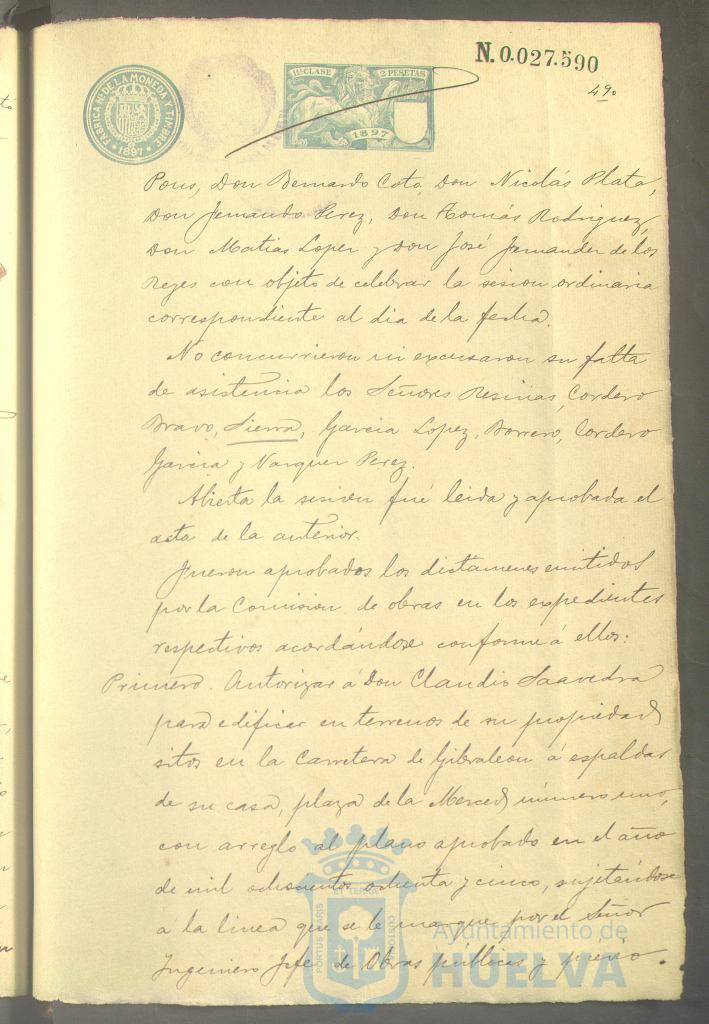 N. 0.027.590
FABRICA NAL DE LA MONEDA Y TIMBRE
* 1897 *
11ª CLASE 2 PESETAS
1897
49.
Pons, Don Bernardo Coto, Don Nicolás Plata,
Don Fernando Perez, Don Tomás Rodriguez,
Don Matias Lopez y Don José Fernandez de los
Reyes con objeto de celebrar la sesion ordinaria
correspondiente al dia de la fecha.
No concurrieron ni excusaron su falta
de asistencia los Señores Resinas, Cordero
Bravo, Sierra, Garcia Lopez, Borrero, Cordero
Garcia y Vazquez Perez.
Abierta la sesion fué leida y aprobada el
acta de la anterior.
Fueron aprobados los dictamenes emitidos
por la Comision de obras en los expedientes
respectivos acordándose conforme á ellos:
Primero. Autorizar á Don Claudio Saavedra
para edificar en terrenos de su propiedad
sitos en la Carretera de Gibraleon á espaldas
de su casa, plaza de la Merced número uno,
con arreglo al plano aprobado en el año
de mil ochocientos ochenta y cinco, sujetándose
á la linea que se le marque por el Señor
Ingeniero Jefe de Obras públicas y prévio
PORTUS MARIS ET TERRAE CUSTODIA
Ayuntamiento de
HUELVA